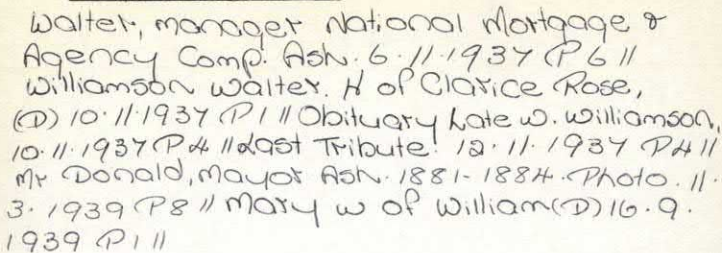 Walter, manager National Mortgage &
Agency Comp. Ash. 6.11.1937 P6 //
Williamson Walter. H of Clarice Rose,
(D) 10.11.1937 P1 // Obituary Late W. Williamson,
10.11.1937 P4 // Last Tribute. 12.11.1937 P4 //
Mr Donald, Mayor Ash. 1881-1884. Photo. 11.
3. 1939 P8 // Mary W of William (D) 16.9.
1939 P1 //